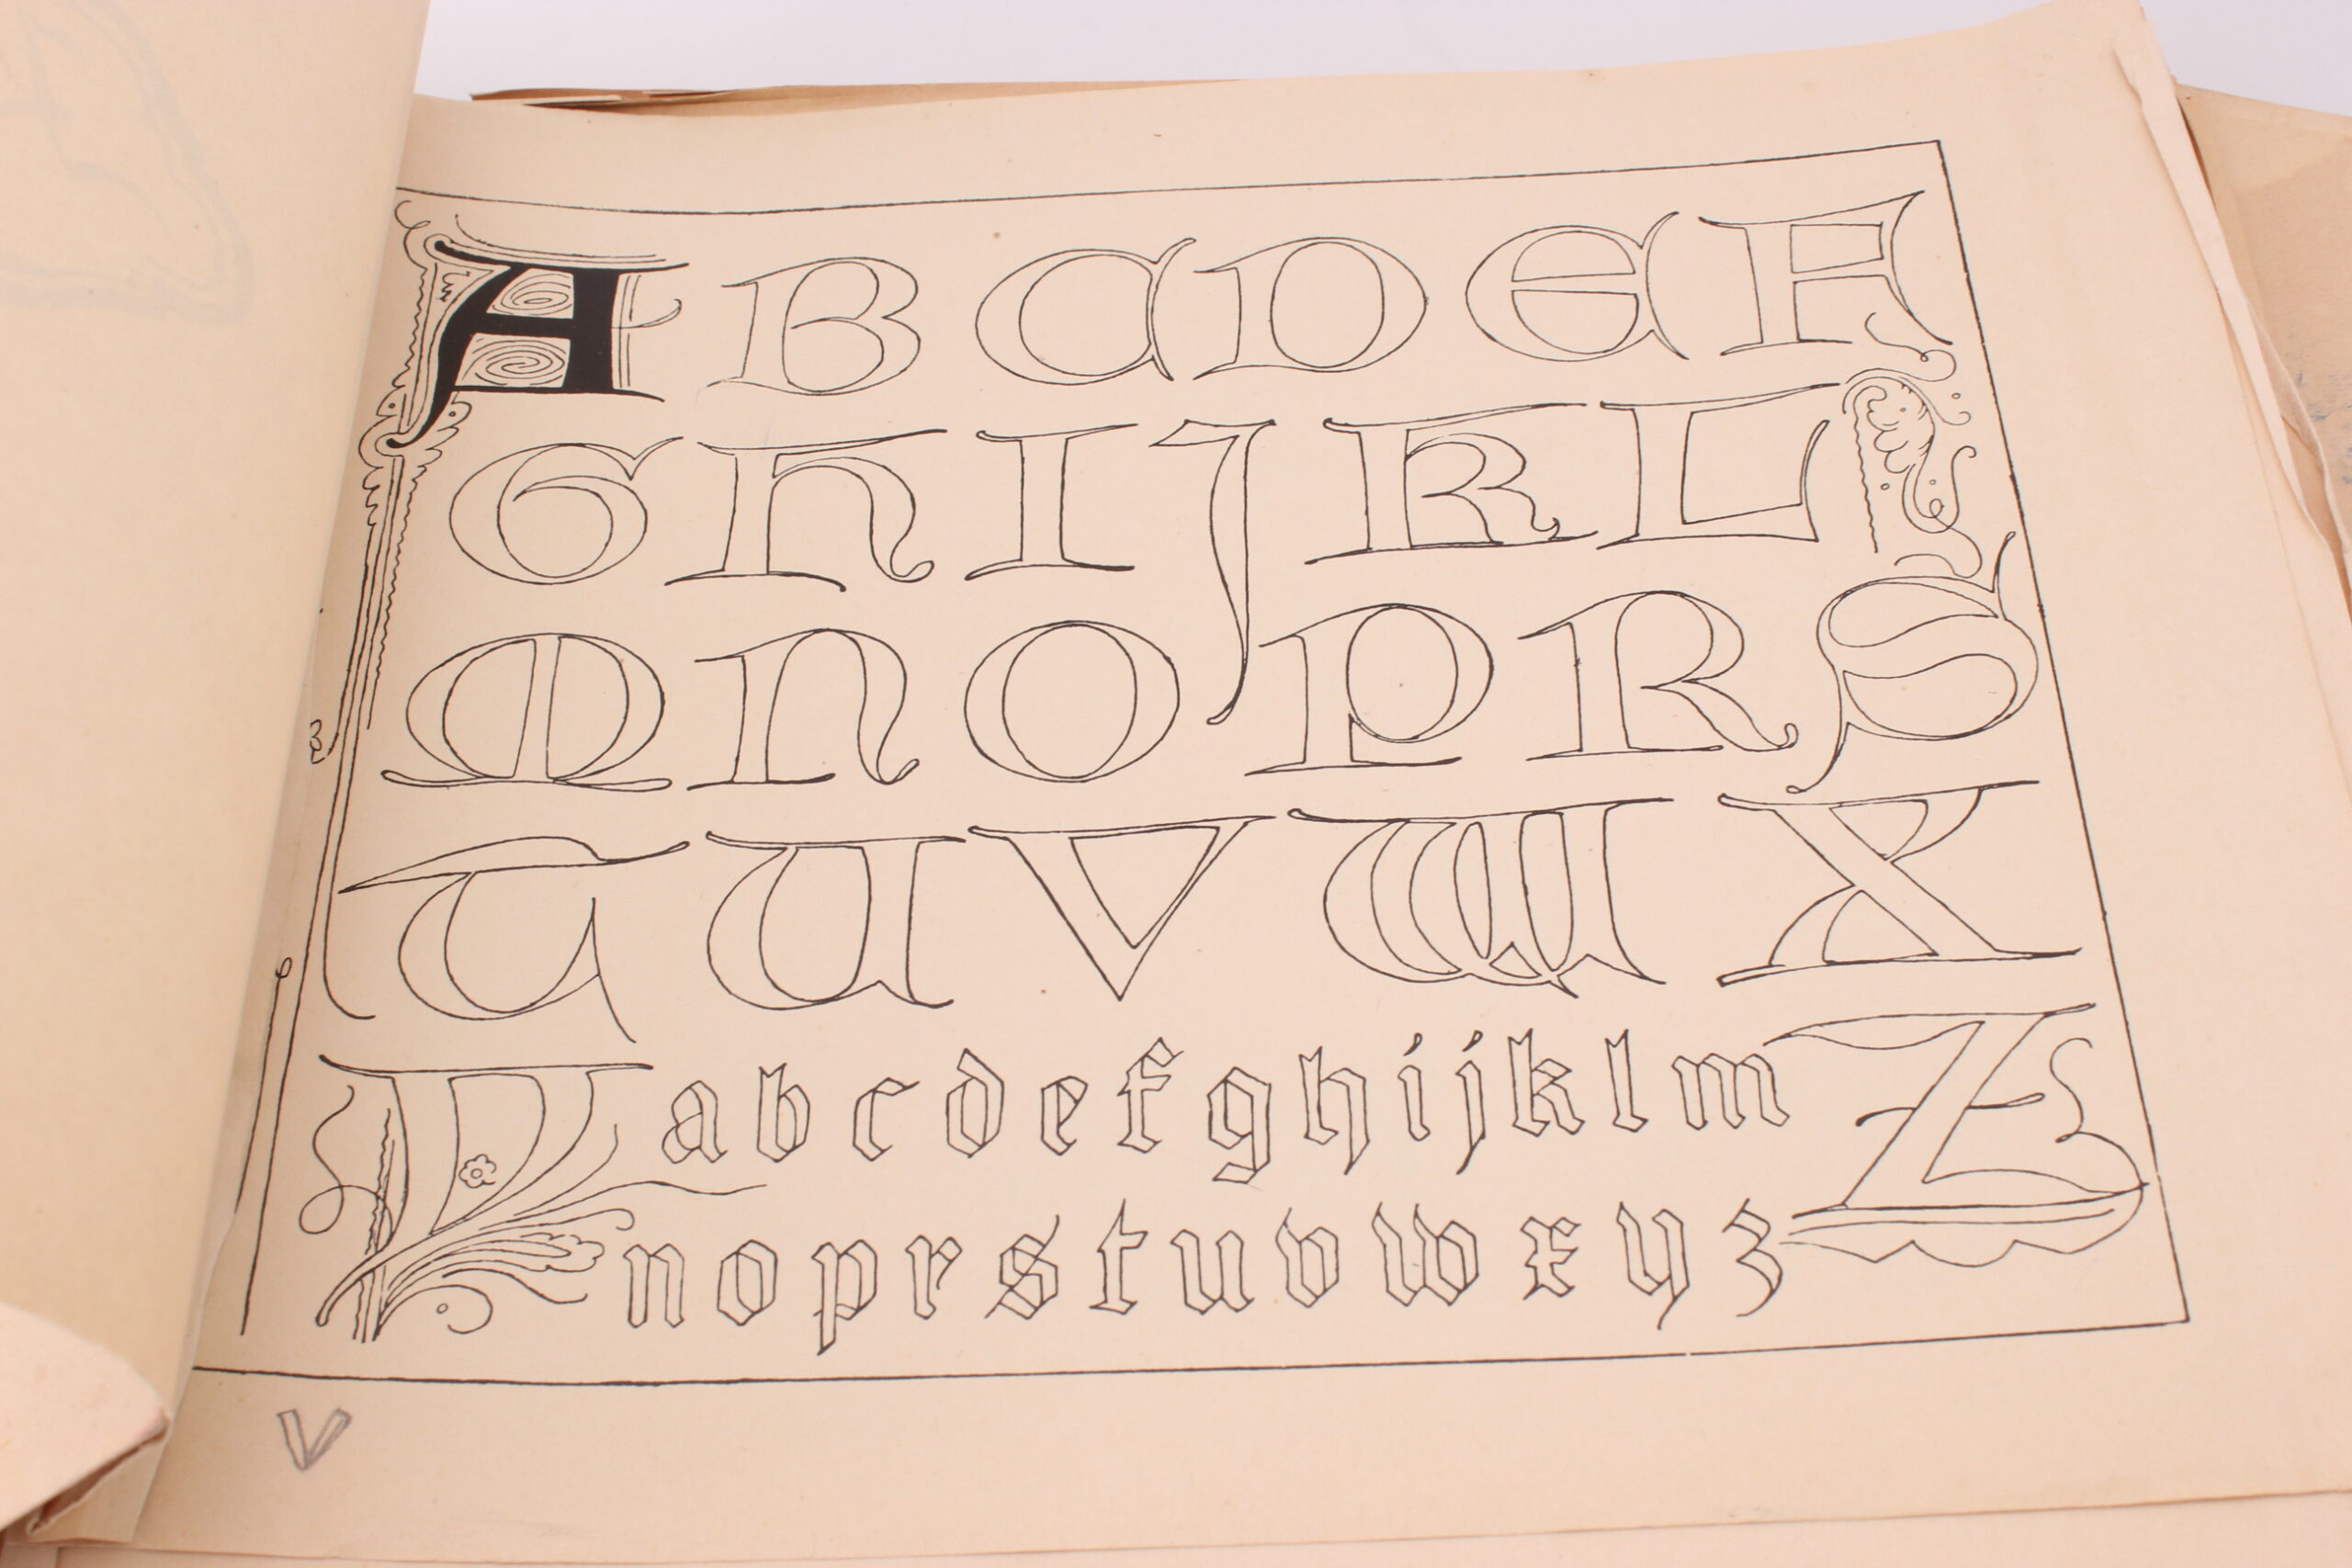 A B C D E F
G H I J K L
M N O P R S
T U V W X
Y a b c d e f g h i j k l m Z
n o p r s t u v w x y z
V